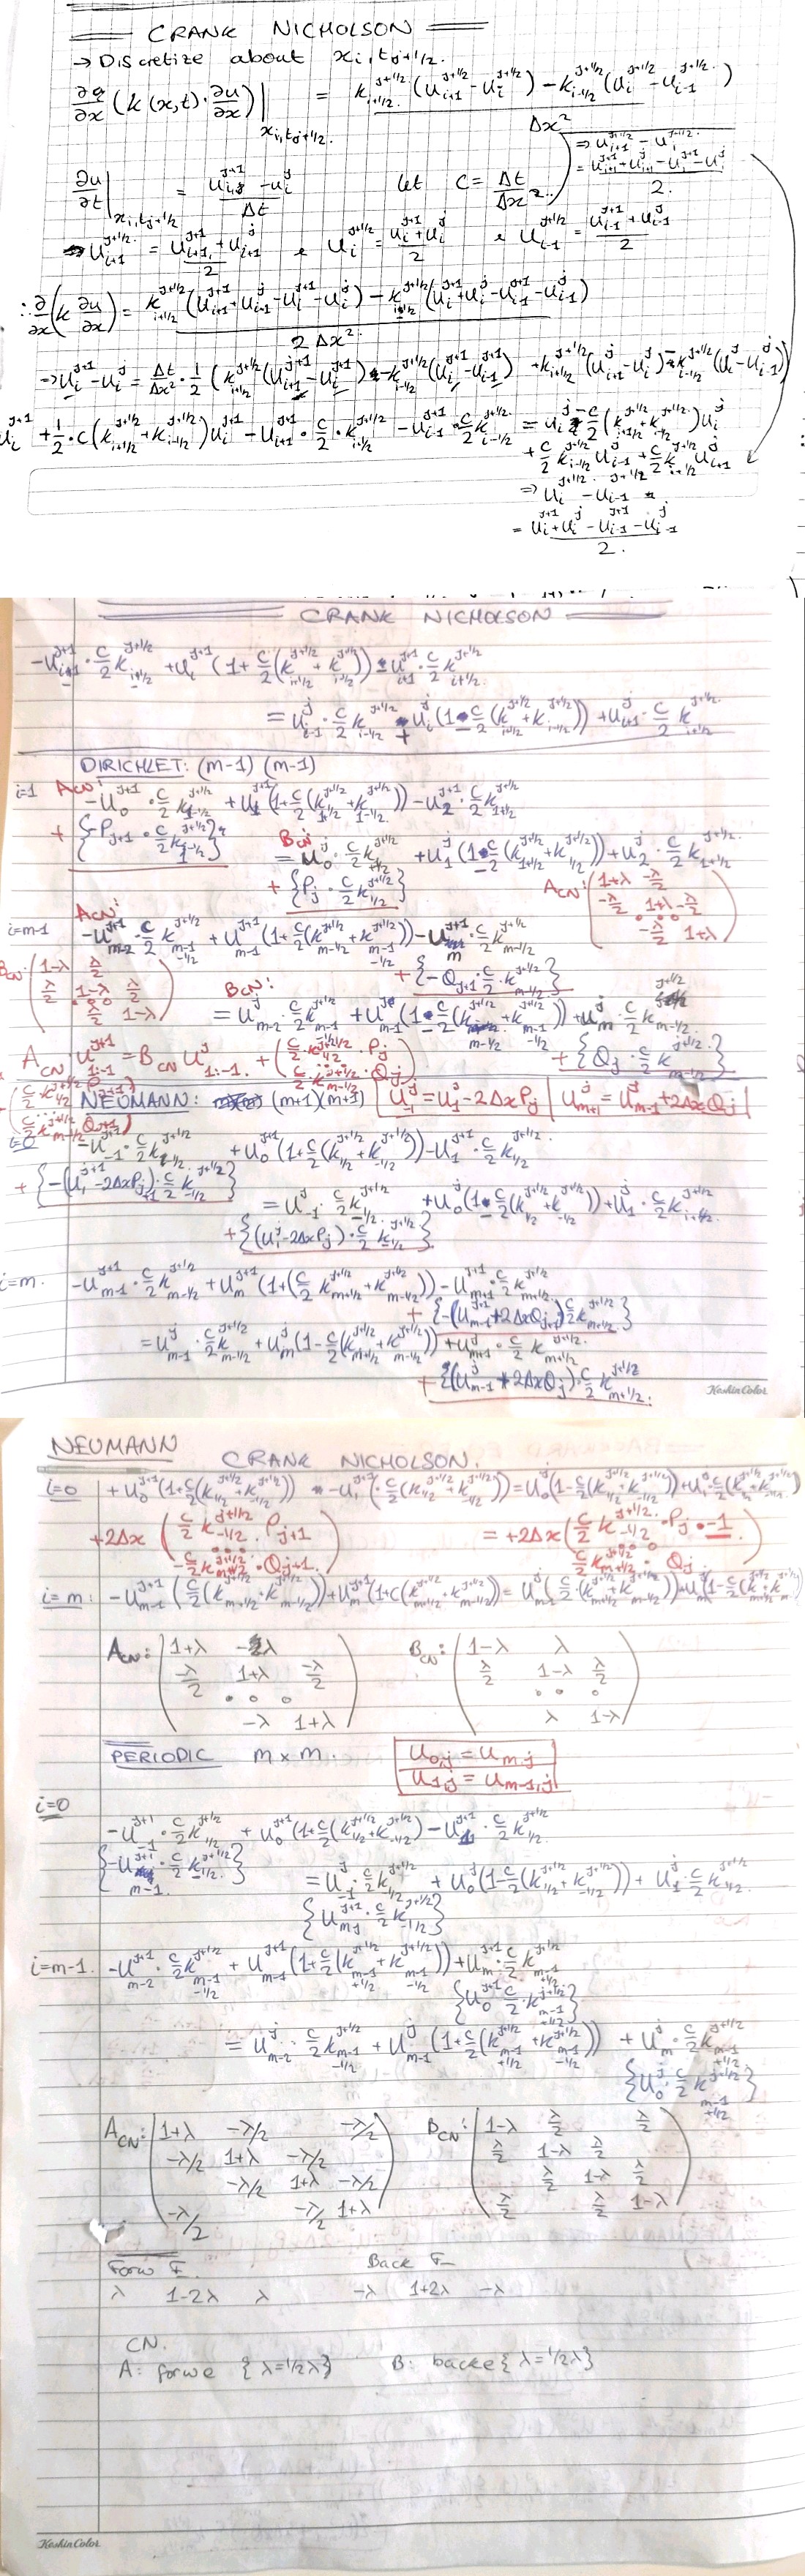 CRANK NICHOLSON
→ Discretize about x_i, t_{j+1/2}.
∂/∂x (k(x,t)·∂u/∂x)|_{x_i,t_{j+1/2}} = k_{i+1/2}^{j+1/2} (u_{i+1}^{j+1/2} - u_i^{j+1/2}) - k_{i-1/2}^{j+1/2} (u_i^{j+1/2} - u_{i-1}^{j+1/2}) / Δx²
⇒ u_{i+1}^{j+1/2} - u_i^{j+1/2}
= u_{i+1}^{j+1} + u_{i+1}^j - u_i^{j+1} - u_i^j / 2.
∂u/∂t|_{x_i,t_{j+1/2}} = u_i^{j+1} - u_i^j / Δt let C = Δt/Δx²
⇒ u_{i+1}^{j+1/2} = u_{i+1}^{j+1} + u_{i+1}^j / 2 & u_i^{j+1/2} = u_i^{j+1} + u_i^j / 2 & u_{i-1}^{j+1/2} = u_{i-1}^{j+1} + u_{i-1}^j / 2
∴ ∂/∂x (k ∂u/∂x) = k_{i+1/2}^{j+1/2} (u_{i+1}^{j+1} + u_{i+1}^j - u_i^{j+1} - u_i^j) - k_{i-1/2}^{j+1/2} (u_i^{j+1} + u_i^j - u_{i-1}^{j+1} - u_{i-1}^j) / 2Δx²
⇒ u_i^{j+1} - u_i^j = Δt/Δx² · 1/2 (k_{i+1/2}^{j+1/2} (u_{i+1}^{j+1} - u_i^{j+1}) - k_{i-1/2}^{j+1/2} (u_i^{j+1} - u_{i-1}^{j+1}) + k_{i+1/2}^{j+1/2} (u_{i+1}^j - u_i^j) - k_{i-1/2}^{j+1/2} (u_i^j - u_{i-1}^j))
u_i^{j+1} + 1/2·c(k_{i+1/2}^{j+1/2} + k_{i-1/2}^{j+1/2}) u_i^{j+1} - u_{i+1}^{j+1}·c/2·k_{i+1/2}^{j+1/2} - u_{i-1}^{j+1}·c/2 k_{i-1/2}^{j+1/2} = u_i^j - c/2 (k_{i+1/2}^{j+1/2} + k_{i-1/2}^{j+1/2}) u_i^j
+ c/2 k_{i-1/2}^{j+1/2} u_{i-1}^j + c/2 k_{i+1/2}^{j+1/2} u_{i+1}^j
⇒ u_i^{j+1/2} - u_{i-1}^{j+1/2}
= u_i^{j+1} + u_i^j - u_{i-1}^{j+1} - u_{i-1}^j / 2.
CRANK NICHOLSON
-u_{i-1}^{j+1}·c/2 k_{i-1/2}^{j+1/2} + u_i^{j+1} (1+c/2(k_{i+1/2}^{j+1/2} + k_{i-1/2}^{j+1/2})) - u_{i+1}^{j+1}·c/2 k_{i+1/2}^{j+1/2}
= u_{i-1}^j·c/2 k_{i-1/2}^{j+1/2} + u_i^j (1-c/2(k_{i+1/2}^{j+1/2} + k_{i-1/2}^{j+1/2})) + u_{i+1}^j·c/2 k_{i+1/2}^{j+1/2}
DIRICHLET: (m-1)(m-1)
i=1 A_CN: -u_0^{j+1}·c/2 k_{1-1/2}^{j+1/2} + u_1^{j+1} (1+c/2(k_{1+1/2}^{j+1/2} + k_{1-1/2}^{j+1/2})) - u_2^{j+1}·c/2 k_{1+1/2}^{j+1/2}
+ {-P_{j+1}·c/2 k_{1-1/2}^{j+1/2}}
B_CN: = u_0^j·c/2 k_{1/2}^{j+1/2} + u_1^j (1-c/2(k_{1+1/2}^{j+1/2} + k_{1/2}^{j+1/2})) + u_2^j·c/2 k_{1+1/2}^{j+1/2}
+ {P_j·c/2 k_{1/2}^{j+1/2}}
A_CN: (1+λ -λ/2
-λ/2 1+λ -λ/2
-λ/2 1+λ)
i=m-1 A_CN: -u_{m-2}^{j+1}·c/2 k_{m-1-1/2}^{j+1/2} + u_{m-1}^{j+1} (1+c/2(k_{m-1/2}^{j+1/2} + k_{m-1-1/2}^{j+1/2})) - u_m^{j+1}·c/2 k_{m-1/2}^{j+1/2}
+ {-Q_{j+1}·c/2·k_{m-1/2}^{j+1/2}}
B_CN: (1-λ λ/2
λ/2 1-λ λ/2
λ/2 1-λ)
B_CN: = u_{m-2}^j·c/2 k_{m-1-1/2}^{j+1/2} + u_{m-1}^j (1-c/2(k_{m-1/2}^{j+1/2} + k_{m-1-1/2}^{j+1/2})) + u_m^j·c/2 k_{m-1/2}^{j+1/2}
+ {Q_j·c/2 k_{m-1/2}^{j+1/2}}
A_CN u_{1:-1}^{j+1} = B_CN u_{1:-1}^j + (c/2·k_{1/2}^{j+1/2}·P_j ... c/2 k_{m-1/2}^{j+1/2}·Q_j)
+ (c/2 k_{1/2}^{j+1/2} P_{j+1} ... c/2 k_{m-1/2}^{j+1/2} Q_{j+1})
NEUMANN: (m+1)(m+1) u_{-1}^j = u_1^j - 2ΔxP_j | u_{m+1}^j = u_{m-1}^j + 2ΔxQ_j
i=0 -u_{-1}^{j+1}·c/2 k_{-1/2}^{j+1/2} + u_0^{j+1} (1+c/2(k_{1/2}^{j+1/2} + k_{-1/2}^{j+1/2})) - u_1^{j+1}·c/2 k_{1/2}^{j+1/2}
+ {-(u_1^{j+1} - 2ΔxP_{j+1})·c/2 k_{-1/2}^{j+1/2}}
= u_{-1}^j·c/2 k_{-1/2}^{j+1/2} + u_0^j (1-c/2(k_{1/2}^{j+1/2} + k_{-1/2}^{j+1/2})) + u_1^j·c/2 k_{1+1/2}^{j+1/2}
+ {(u_1^j - 2ΔxP_j)·c/2 k_{-1/2}^{j+1/2}}
i=m. -u_{m-1}^{j+1}·c/2 k_{m-1/2}^{j+1/2} + u_m^{j+1} (1+(c/2 k_{m+1/2}^{j+1/2} + k_{m-1/2}^{j+1/2})) - u_{m+1}^{j+1}·c/2 k_{m+1/2}^{j+1/2}
+ {-(u_{m-1}^{j+1} + 2ΔxQ_{j+1}) c/2 k_{m+1/2}^{j+1/2}}
= u_{m-1}^j·c/2 k_{m-1/2}^{j+1/2} + u_m^j (1-c/2(k_{m+1/2}^{j+1/2} + k_{m-1/2}^{j+1/2})) + u_{m+1}^j·c/2 k_{m+1/2}^{j+1/2}
+ {(u_{m-1}^j + 2ΔxQ_j)·c/2 k_{m+1/2}^{j+1/2}}
KeshinColor
NEUMANN CRANK NICHOLSON.
i=0 + u_0^{j+1} (1+c/2(k_{1/2}^{j+1/2} + k_{-1/2}^{j+1/2})) - u_1^{j+1} (c/2(k_{1/2}^{j+1/2} + k_{-1/2}^{j+1/2})) = u_0^j (1-c/2(k_{1/2}^{j+1/2} + k_{-1/2}^{j+1/2})) + u_1^j·c/2(k_{1/2}^{j+1/2} + k_{-1/2}^{j+1/2})
+2Δx (c/2 k_{-1/2}^{j+1/2}·P_{j+1} ... -c/2 k_{m+1/2}^{j+1/2}·Q_{j+1}) = +2Δx (c/2 k_{-1/2}^{j+1/2}·P_j·-1 ... c/2 k_{m+1/2}^{j+1/2}·Q_j)
i=m: -u_{m-1}^{j+1} (c/2(k_{m+1/2}^{j+1/2} + k_{m-1/2}^{j+1/2})) + u_m^{j+1} (1+c(k_{m+1/2}^{j+1/2} + k_{m-1/2}^{j+1/2})) = u_{m-1}^j (c/2·(k_{m+1/2}^{j+1/2} + k_{m-1/2}^{j+1/2})) + u_m^j (1-c/2(k
A_CN: (1+λ -λ
-λ/2 1+λ -λ/2
-λ 1+λ)
B_CN: (1-λ λ
λ/2 1-λ λ/2
λ 1-λ)
PERIODIC m×m. u_{0,j} = u_{m,j}
u_{1,j} = u_{m-1,j}
i=0
-u_{-1}^{j+1}·c/2 k_{-1/2}^{j+1/2} + u_0^{j+1} (1+c/2(k_{1/2}^{j+1/2} + k_{-1/2}^{j+1/2})) - u_1^{j+1}·c/2 k_{1/2}^{j+1/2}
{-u_{m-1}^{j+1}·c/2 k_{-1/2}^{j+1/2}}
= u_{-1}^j·c/2 k_{-1/2}^{j+1/2} + u_0^j (1-c/2(k_{1/2}^{j+1/2} + k_{-1/2}^{j+1/2})) + u_1^j·c/2 k_{1/2}^{j+1/2}
{u_{m-1}^{j+1}·c/2 k_{-1/2}^{j+1/2}}
i=m-1. -u_{m-2}^{j+1}·c/2 k_{m-1-1/2}^{j+1/2} + u_{m-1}^{j+1} (1+c/2(k_{m-1+1/2}^{j+1/2} + k_{m-1-1/2}^{j+1/2})) + u_m^{j+1}·c/2 k_{m-1+1/2}^{j+1/2}
{u_0^{j+1} c/2·k_{m-1+1/2}^{j+1/2}}
= u_{m-2}^j·c/2 k_{m-1-1/2}^{j+1/2} + u_{m-1}^j (1+c/2(k_{m-1+1/2}^{j+1/2} + k_{m-1-1/2}^{j+1/2})) + u_m^j·c/2 k_{m-1+1/2}^{j+1/2}
{u_0^j·c/2 k_{m-1+1/2}^{j+1/2}}
A_CN: (1+λ -λ/2 -λ/2
-λ/2 1+λ -λ/2
-λ/2 1+λ -λ/2
-λ/2 -λ/2 1+λ)
B_CN: (1-λ λ/2 λ/2
λ/2 1-λ λ/2
λ/2 1-λ λ/2
λ/2 λ/2 1-λ)
Forw E. Back E
λ 1-2λ λ -λ 1+2λ -λ
CN.
A: forwe {λ=1/2λ} B: backe {λ=1/2λ}
KeshinColor